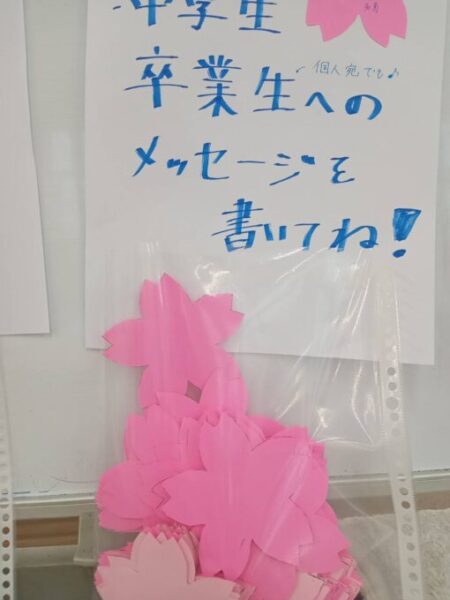 中学生
卒業生への
個人宛でも♪
メッセージを
書いてね!